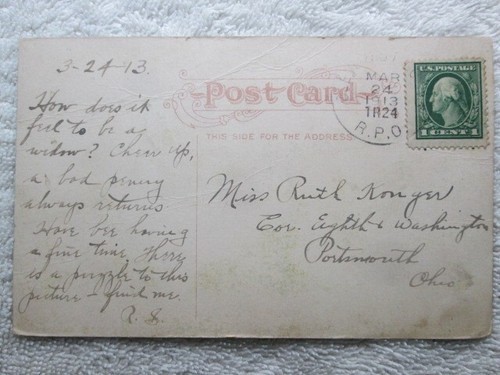 3-24-13.
How does it
feel to be a
widow? Cheer up,
a bad penny
always returns
Have bee having
a fine time. There
is a puzzle to this
picture - find me.
R. S.
Post Card
THIS SIDE FOR THE ADDRESS
MAR
24
1913
TR24
R.P.O.
U.S. POSTAGE
1 CENT 1
Miss Ruth Konger
Cor. Eighth & Washington
Portsmouth
Ohio